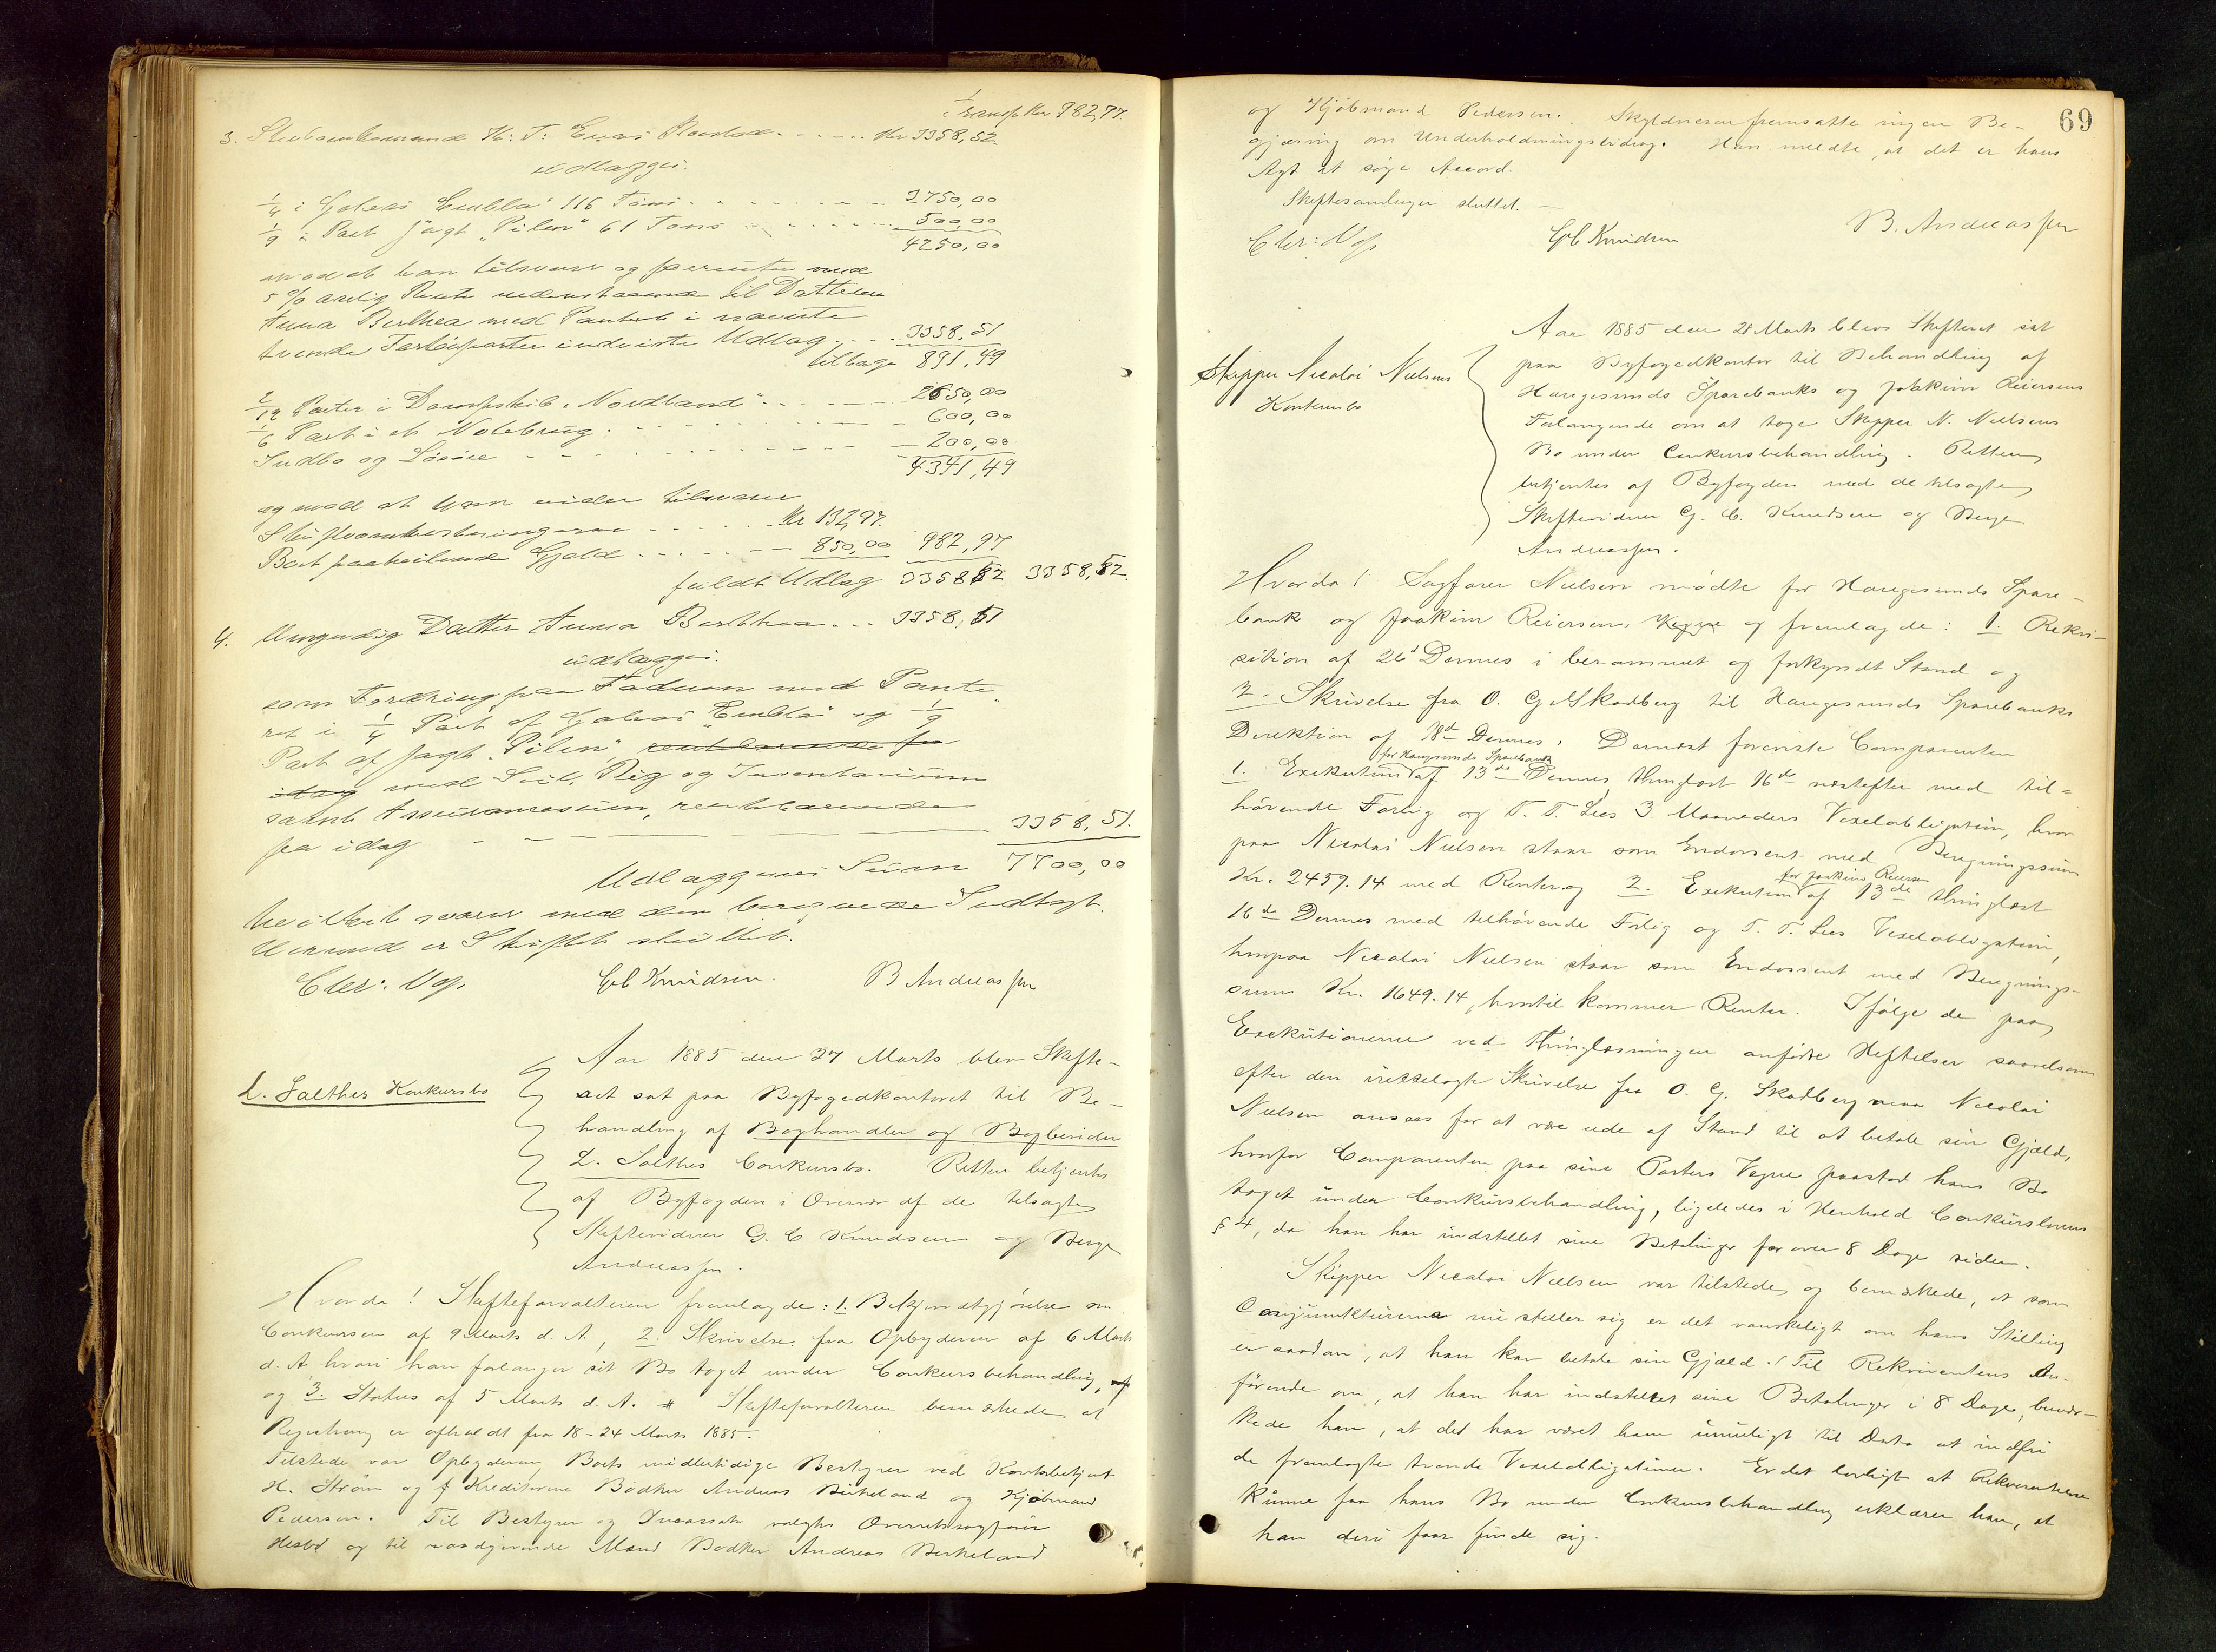 Transp Kr 982,97.
3. Stervboenkemand H: T: Naustad - - - - Kr 3358,52
udlægges.
1/4 i Galeas Embla 116 Tons - - - - 3750,00
1/9 Part Jagt "Pilen" 61 Tons - - - - 500,00
4250,00
mod at han tilsvarer og forrenter med
5 % aarlig Rente nedenstaaende til Datteren
Anna Berthea med Panteret i nævnte
tvende Fartøiparter indviste Udlag - - - 3358,51
tilbage 891,49
2/12 Parter i Dampskib "Nordland" - - - - 2650,00
1/6 Part i et Notebrug - - - - 600,00
Indbo og Løsøre - - - - 200,00
4341,49
og mod at han videre tilsvarer
Skifteomkostningerne - - - - Kr 132,97.
Boet paahvilende Gjæld - - - - 850,00 982,97
fuldt Udlæg 3358,52 3358,52.
4. Umyndig Datter Anna Berthea - - - 3358,51
udlægges.
som Fordring paa Faderen med Pante-
ret i 1/4 Part af Galeas "Embla" og 1/9
Part af Jagt "Pilen", rentebærende fra
idag med Seil, Rig og Inventarium
samt Assurancesum, rentebærende
fra idag - - - 3358,51.
Udlæggenes Sum 7700,00
hvilket svarer med den beregnede Indtægt.
Hermed er Skiftet sluttet.
Chr: Vogt
G C Knudsen.
B Andreassen
L. Salthes Konkursbo
Aar 1885 den 27 Marts blev Skifte-
ret sat paa Byfogedkontoret til Be-
handling af Boghandler og Bogbinder
L. Salthes Conkursbo. Retten betjentes
af Byfogden i Overvær af de tilsagte
Skiftevidner G. C Knudsen og Berge
Andreassen.
Hvorda! Skifteforvalteren fremlagde: 1. Bekjendtgjörelse om
Conkursen af 9 Marts d. A., 2. Skrivelse fra Opbyderen af 6 Marts
d. A hvori han forlanger sit Bo taget under Conkursbehandling,
og 3. Status af 5 Marts d. A. Skifteforvalteren bemærkede at
Registrering er afholdt fra 18 - 24 Marts 1885.
Tilstede var Opbyderen, Boets midlertidige Bestyrer ved Kontorbetjent
H. Ström og Kreditorerne Bödker Andreas Birkeland og Kjöbmand
Pedersen. Til Bestyrer og Incassator valgtes Overretssagförer
Hesbö og til raadgivende Mænd Bödker Andreas Birkeland
69
og Kjöbmand Pedersen. Skyldneren fremsatte ingen Be-
gjæring om Underholdningsbidrag. Han meldte, at det er hans
Agt at söge Accord.
Skiftesamlingen sluttet. -
Chr: Vogt
G C Knudsen
B. Andreassen
Skipper Nicolai Nielsens
Konkursbo
Aar 1885 den 28 Marts blev Skifteret sat
paa Byfogedkontor til Behandling af
Haugesunds Sparebanks og Joakim Reiersens
Forlangende om at tage Skipper N. Nielsens
Bo under Conkursbehandling. Retten
betjentes af Byfogden med de tilsagte
Skiftevidner G. C. Knudsen og Berge
Andreassen.
Hvorda! Sagförer Nielsen mödte for Haugesunds Spare-
bank og Joakim Reiersens Vegne og fremlagde: 1. Rekvi-
sition af 26' Dennes i berammet og forkyndt Stand og
2. Skrivelse fra O. G. Skadberg til Haugesunds Sparebanks
Direktion af 18de Dennes. Dernæst foreviste Comparenten
for Haugesunds Sparebank
1. Exekution af 13de Dennes thinglæst 16de næstefter med til-
hörende Forlig og T. T. Lies 3 Maaneders Vexelobligation, hvor
paa Nicolai Nielsen staar som Endossent med Beregningssum
for Joakim Reiersen
Kr. 2459.14 med Renter og 2. Exekution af 13de thinglæst
16de Dennes med tilhörende Forlig og T. T. Lies Vexelobligation,
hvorpaa Nicolai Nielsen staar som Endossent med Beregnings-
sum Kr. 1649.14, hvortil kommer Renter. Ifölge de paa
Exekutionerne ved Thinglæsningen anförte Heftelser saavelsom
efter den irettelagte Skrivelse fra O. G. Skadberg maa Nicolai
Nielsen ansees for at være ude af Stand til at betale sin Gjæld,
hvorfor Comparenten paa sine Parters Vegne paastod hans Bo
taget under Conkursbehandling, ligeledes i Henhold Conkurslovens
§ 4, da han har indstillet sine Betalinger for over 8 Dage siden.
Skipper Nicolai Nielsen var tilstede og bemærkede, at som
Conjunkturerne nu stiller sig er det vanskeligt om hans Stilling
er saadan, at han kan betale sin Gjæld. Til Rekvirentens An-
förende om, at han har indstillet sine Betalinger i 8 Dage, bemær-
kede han, at det har været ham umuligt til Dato at indfri
de fremlagte tvende Vexelobligationer. Er det lovligt at Rekvirenterne
kunne faa hans Bo under Conkursbehandling erklærer han, at
han deri faar finde sig.